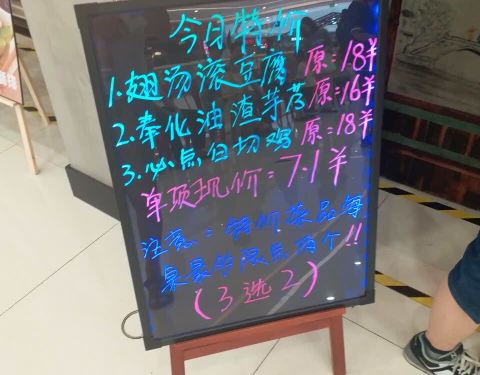 今日特价
1.翅汤滚豆腐 原:18¥
2.奉化油渣芋艿 原=16¥
3.必点白切鸡 原=18¥
单项现价=7.1¥
注意:特价菜品每
桌最多限点两个!!
(3选2)